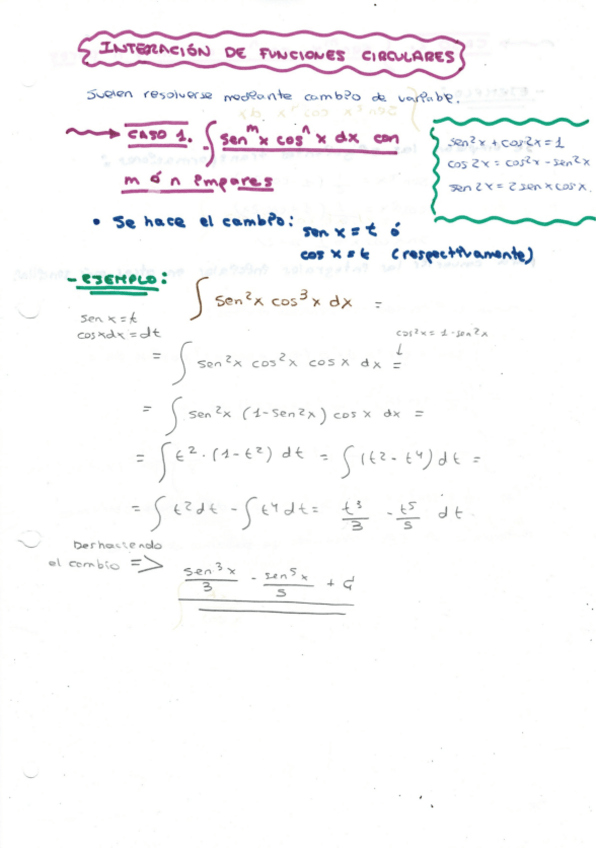 INTEGRACIÓN DE FUNCIONES CIRCULARES
Suelen resolverse mediante cambio de variable.
CASO 1. ∫ sen^m x cos^n x dx con
m ó n impares
sen²x + cos²x = 1
cos 2x = cos²x - sen²x
sen 2x = 2 sen x cos x.
• Se hace el cambio: sen x = t ó
cos x = t (respectivamente)
- EJEMPLO: ∫ sen²x cos³x dx =
sen x = t
cosxdx = dt
cos²x = 1 - sen²x
= ∫ sen²x cos²x cos x dx =
= ∫ sen²x (1-sen²x) cos x dx =
= ∫ t² · (1-t²) dt = ∫ (t² - t⁴) dt =
= ∫ t² dt - ∫ t⁴ dt = t³/3 - t⁵/5 dt.
Deshaciendo
el cambio => sen³x/3 - sen⁵x/5 + C